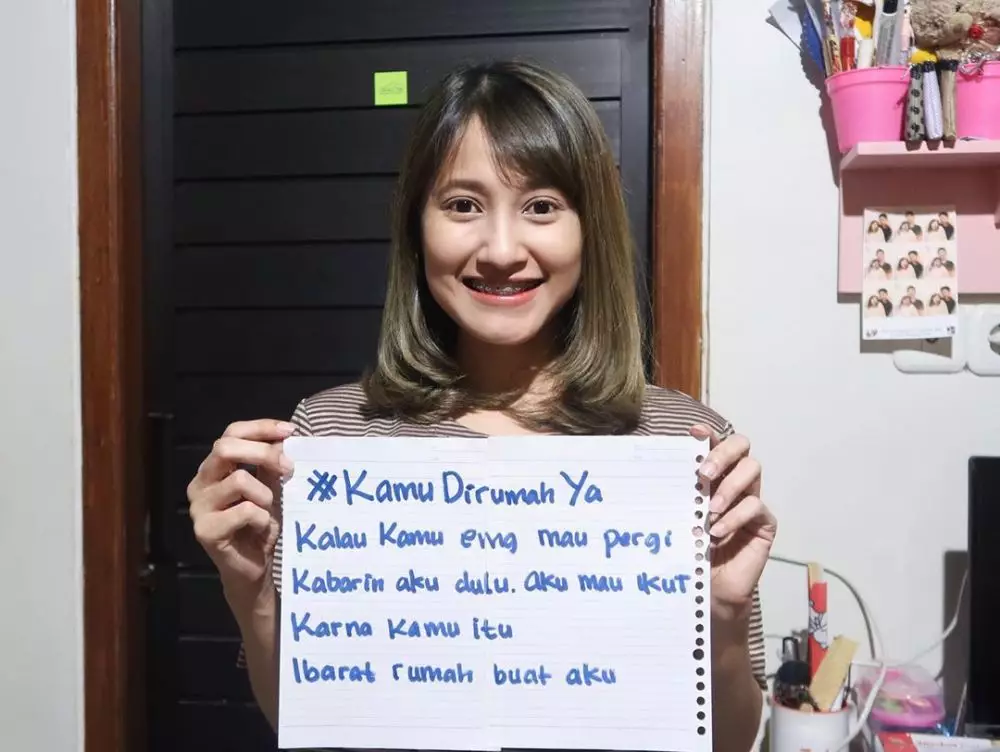 #Kamu Dirumah Ya
Kalau Kamu emg mau pergi
Kabarin aku dulu. aku mau ikut
Karna Kamu itu
Ibarat rumah buat aku